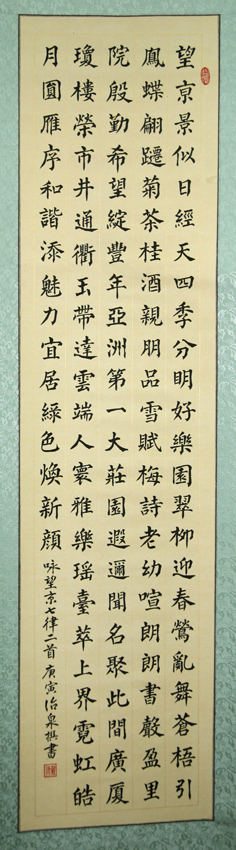 望亰景似日經天四季分明好樂園翠柳迎春鶯亂舞蒼梧引
鳳蝶翩躚菊茶桂酒親朋品雪賦梅詩老幼喧朗朗書聲盈里
院殷勤希望綻豐年亞洲第一大莊園遐邇聞名聚此間廣厦
瓊樓榮市井通衢玉帶達雲端人寰雅樂瑤臺萃上界霓虹皓
月圓雁序和諧添魅力宜居綠色煥新顔
咏望京七律二首庚寅治泉撰書